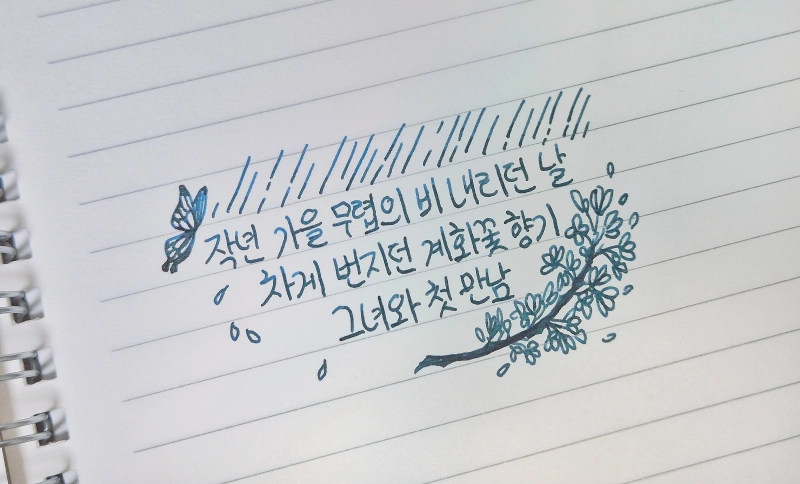 작년 가을 무렵의 비 내리던 날
차게 번지던 계화꽃 향기
그녀와 첫 만남